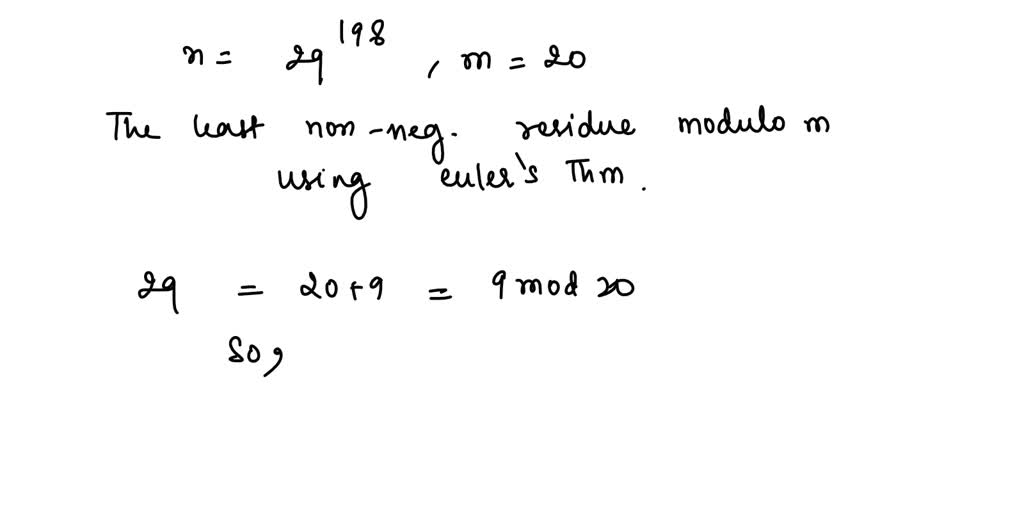 n = 29^198 , m = 20
The least non-neg. residue modulo m
using euler's Thm.
29 = 20+9 = 9 mod 20
So,